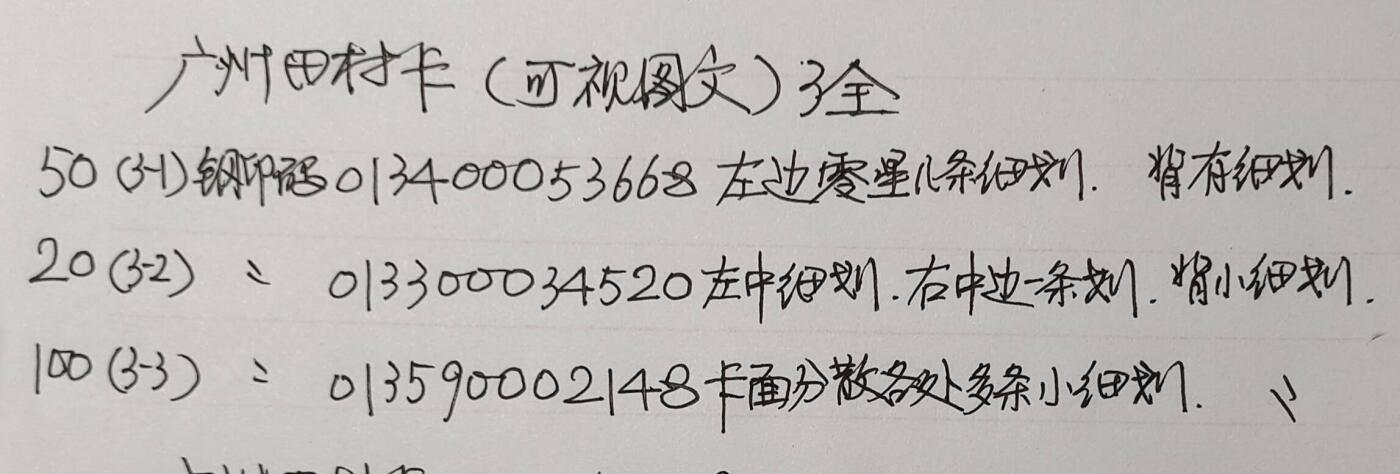 广州田村卡（可视图文）3全
50（3-1）钢印码013400053668左边零星几条细划. 背有细划.
20（3-2） 〃 013300034520左中细划.右中边一条划.背小细划.
100（3-3） 〃 013590002148卡面分散各处多条小细划. 〃